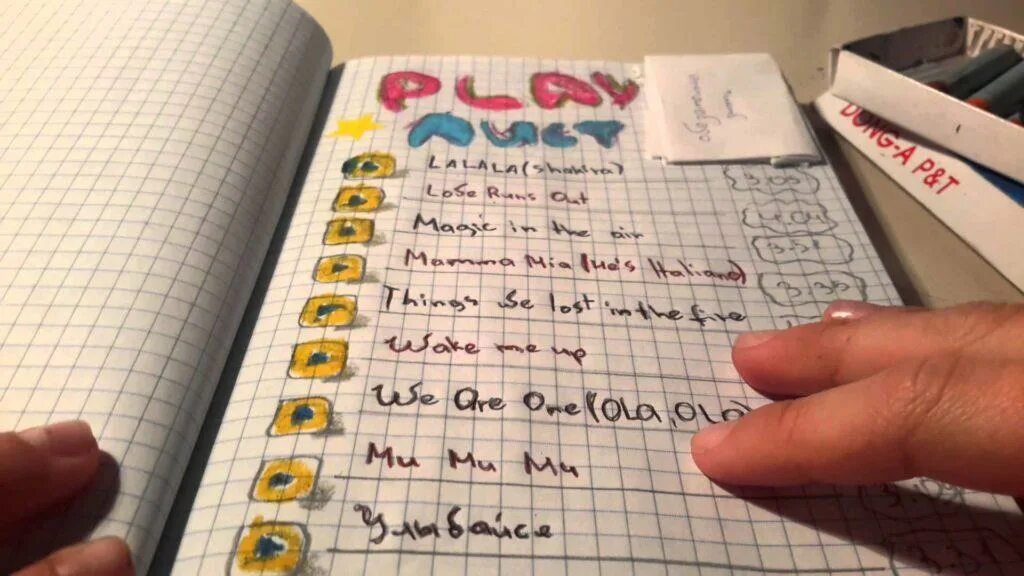 PLAY
ЛИСТ
LALALA (Shakira)
Lose Runs Out
4:04
Magic in the air
Mamma Mia (He's Italiano)
Things We lost in the fire
Wake me up
We Are One (OLA, OLA)
Ми Ми Ми
Улыбайся
DONG-A P&T